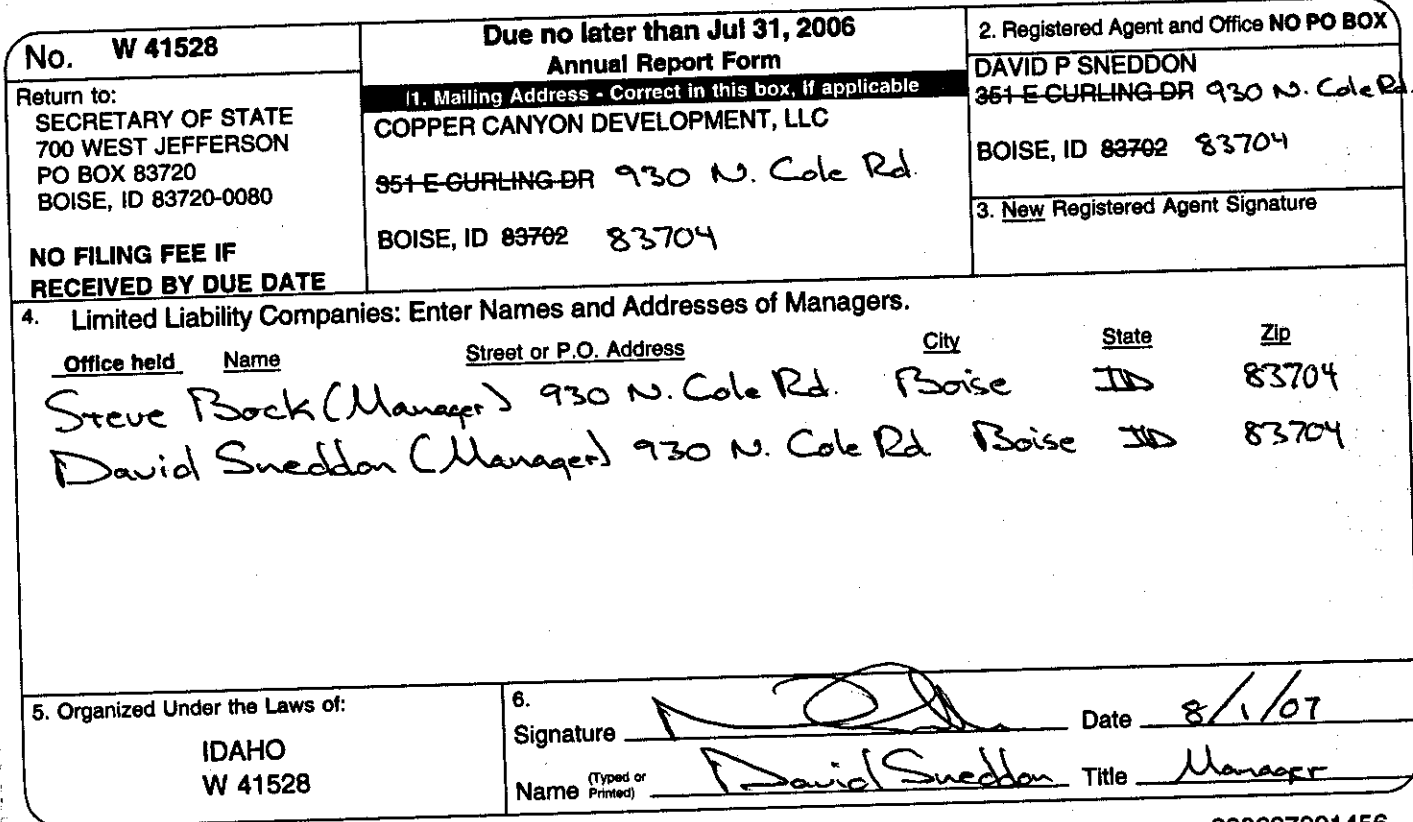 No. W 41528
Return to:
SECRETARY OF STATE
700 WEST JEFFERSON
PO BOX 83720
BOISE, ID 83720-0080
NO FILING FEE IF
RECEIVED BY DUE DATE
Due no later than Jul 31, 2006
Annual Report Form
1. Mailing Address - Correct in this box, if applicable
COPPER CANYON DEVELOPMENT, LLC
951 E CURLING DR 930 N. Cole Rd.
BOISE, ID 83702 83704
2. Registered Agent and Office NO PO BOX
DAVID P SNEDDON
351 E CURLING DR 930 N. Cole Rd.
BOISE, ID 83702 83704
3. New Registered Agent Signature
4. Limited Liability Companies: Enter Names and Addresses of Managers.
Office held Name Street or P.O. Address City State Zip
Steve Bock (Manager) 930 N. Cole Rd. Boise ID 83704
David Sneddon (Manager) 930 N. Cole Rd Boise ID 83704
5. Organized Under the Laws of:
IDAHO
W 41528
6.
Signature Date 8/1/07
Name (Typed or Printed) David Sneddon Title Manager